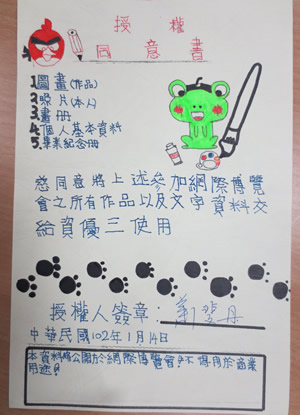 授權
同意書
1.圖畫(作品)
2.照片(本人)
3.畫冊
4.個人基本資料
5.畢業紀念冊
您同意將上述參加網際博覽
會之所有作品以及文字資料交
給資優三使用
授權人簽章:
中華民國102年1月14日
本資料將公開於網際博覽會!不得用於商業
用途!